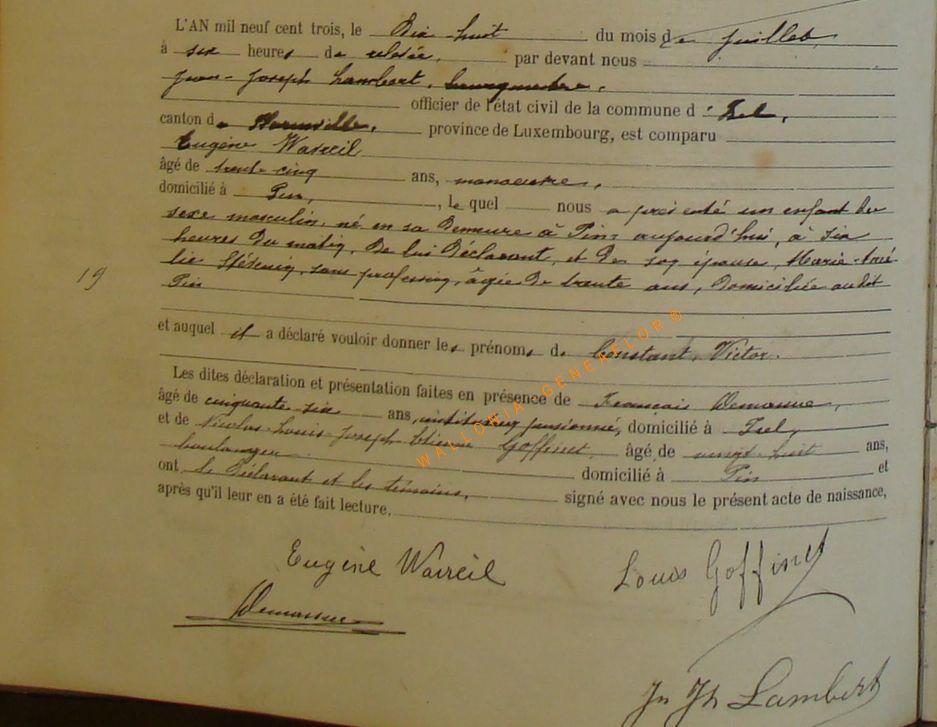 L'AN mil neuf cent trois, le Dix huit du mois de Juillet
à six heures de relevée, par devant nous
Jean-Joseph Lambert, bourgmestre,
officier de l'état civil de la commune d'Izel,
canton de Florenville, province de Luxembourg, est comparu
Eugène Warcil
âgé de trente cinq ans, manoeuvre,
domicilié à Pin, lequel nous a présenté un enfant du
sexe masculin, né en sa demeure à Pin aujourd'hui, à six
heures du matin, de lui déclarant, et de son épouse, Marie
sans profession, âgée de trente ans, domiciliée audit
Pin
19
et auquel il a déclaré vouloir donner les prénoms de Constant, Victor.
Les dites déclaration et présentation faites en présence de François Demasue,
âgé de cinquante six ans, instituteur pensionné, domicilié à Izel,
et de Nicolas-Louis-Joseph Goffinet, âgé de vingt-huit ans,
boulanger domicilié à Pin et
ont le déclarant et les témoins, signé avec nous le présent acte de naissance,
après qu'il leur en a été fait lecture.
WALLONIA GENEFLOR®
Eugène Warcil
Louis Goffinet
Demasue
Jn Jh Lambert